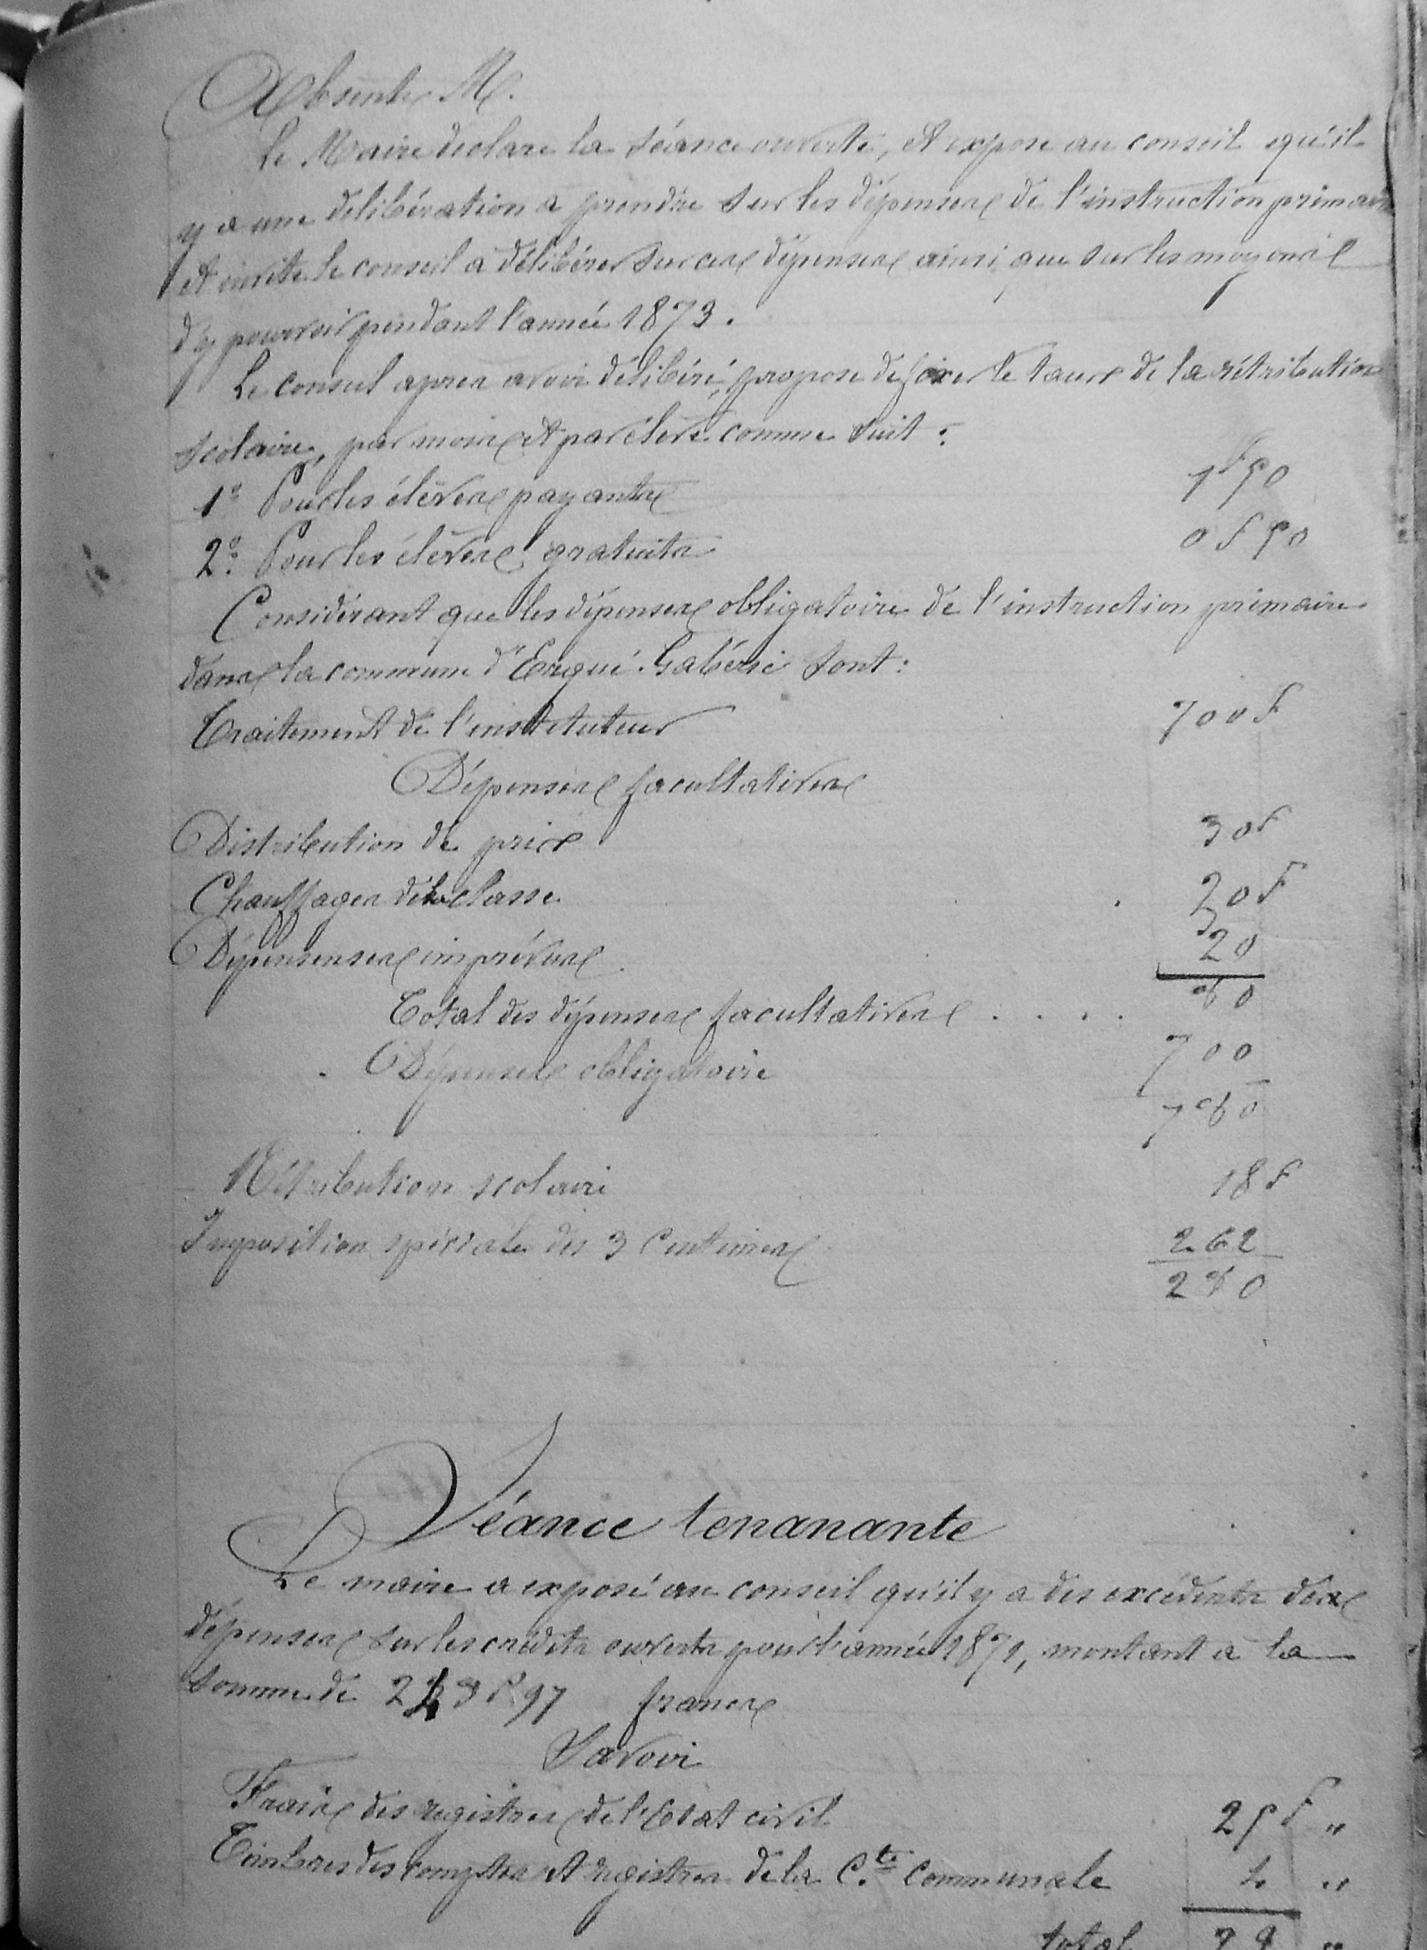 Absents M.
Le Maire déclare la Séance ouverte, et expose au conseil qu'il
y a une délibération a prendre sur les dépenses de l'instruction primaire
et invite le conseil a délibérer sur ces dépenses ainsi que sur les moyens
d'y pourvoir pendant l'année 1873.
Le conseil apres avoir délibéré, propose de fixer le taux de la rétribution
scolaire, par mois et par élève comme suit :
1° Pour les élèves payants 1f50
2° Pour les élèves gratuits 0f50
Considérant que les dépenses obligatoires de l'instruction primaire
dans la commune d'Ergué-Gabéric sont :
Traitement de l'instituteur 700f
Dépenses facultatives
Distribution de prix 30f
Chauffages de la classe 20f
Dépensenses imprévues 20
Total des dépenses facultatives . . . . 60
Dépenses obligatoire 700
760
Rétribution scolaire 18f
Imposition spéciale des 3 Centimes 262
280
Séance tenanante
Le maire a exposé au conseil qu'il y a des excédents des
dépenses sur les crédits ouverts pour l'année 1871, montant a la
somme de francs
Savoir
Frais des registres de l'Etat civil 25f "
Timbres des comptes et registres de la C.te Communale 4 "
total